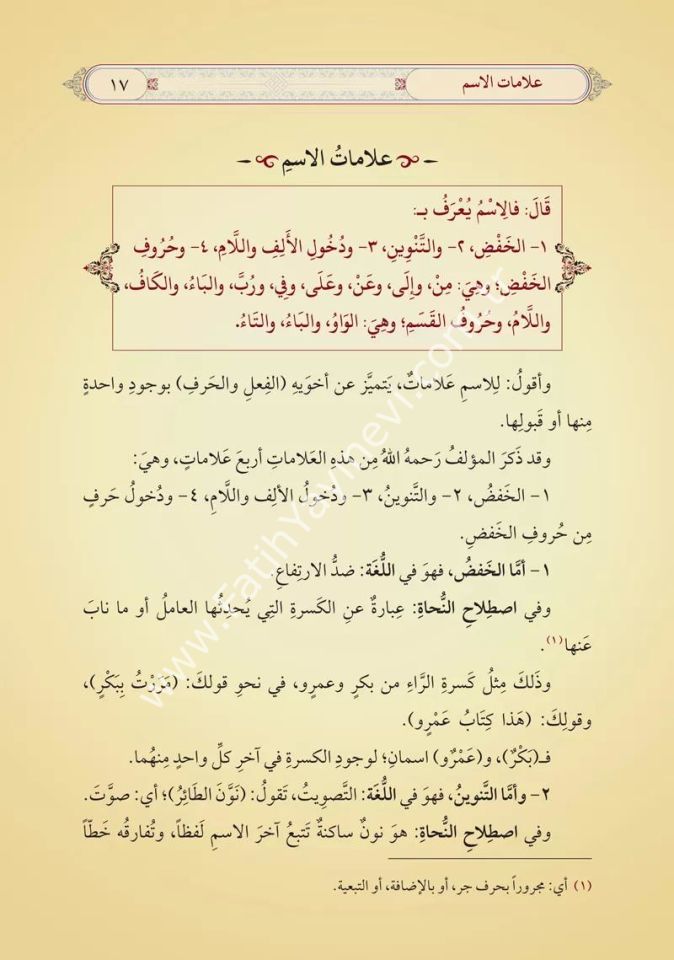 علامات الاسم
١٧
علاماتُ الاسمِ
قَالَ: فالِاسْمُ يُعْرَفُ بـ:
١- الخَفْضِ، ٢- والتَّنْوِينِ، ٣- ودُخُولِ الأَلِفِ واللَّامِ، ٤- وحُرُوفِ
الخَفْضِ؛ وهِيَ: مِنْ، وإِلَى، وعَنْ، وعَلَى، وفِي، ورُبَّ، والبَاءُ، والكَافُ،
واللَّامُ، وحُرُوفُ القَسَمِ؛ وهِيَ: الوَاوُ، والبَاءُ، والتَاءُ.
وأقولُ: لِلاسمِ عَلاماتٌ، يَتميَّز عن أخوَيهِ (الفِعلِ والحَرفِ) بوجودِ واحدةٍ
مِنها أو قَبولِها.
وقد ذَكَرَ المؤلفُ رَحمهُ اللهُ مِن هذِهِ العَلاماتِ أربعَ عَلاماتٍ، وهيَ:
١- الخَفضُ، ٢- والتَّنوينُ، ٣- ودُخولُ الألِفِ واللَّامِ، ٤- ودُخولُ حَرفٍ
مِن حُروفِ الخَفضِ.
١- أمَّا الخَفضُ، فهوَ في اللُّغَة: ضدُّ الارتِفاعِ.
وفي اصطِلاحِ النُّحاةِ: عِبارةٌ عنِ الكَسرةِ التِي يُحدِثُها العاملُ أو ما نابَ
عَنها(١).
وذَلكَ مِثلُ كَسرةِ الرَّاءِ من بكرٍ وعمرٍو، في نحوِ قولكَ: (مَرَرْتُ بِبَكْرٍ)،
وقولِكَ: (هَذا كِتَابُ عَمْرٍو).
فـ(بَكْرٌ)، و(عَمْرٌو) اسمانِ؛ لوجودِ الكسرةِ في آخرِ كلِّ واحدٍ مِنهُما.
٢- وأمَّا التَّنوينُ، فهوَ في اللُّغَة: التَّصويتُ، تَقولُ: (نَوَّنَ الطَائِرُ)؛ أي: صوَّتَ.
وفي اصطِلاحِ النُّحاةِ: هوَ نونٌ ساكنةٌ تَتبعُ آخرَ الاسمِ لَفظاً، وتُفارقُه خَطّاً
(١) أي: مجروراً بحرف جر، أو بالإضافة، أو التبعية.
www.FatihYayinevi.com.tr